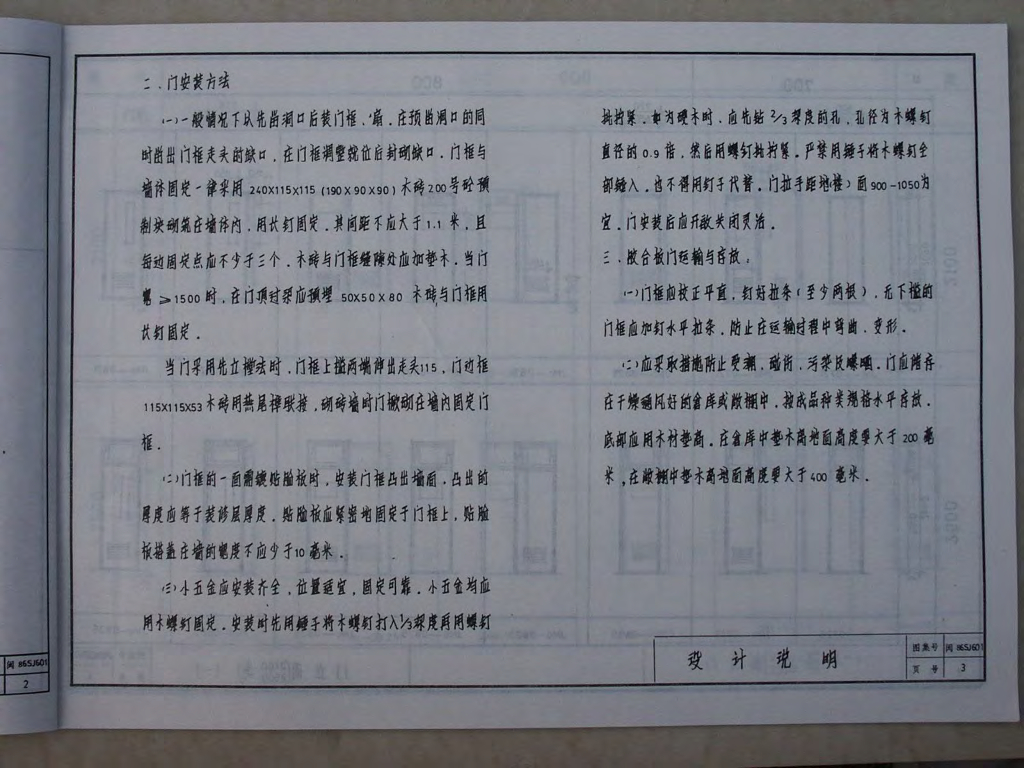 二．门安装方法
（一）一般情况下以先留洞口后装门框、扇．在预留洞口的同
时留出门框走头的缺口，在门框调整就位后封砌缺口．门框与
墙体固定一律采用 240X115X115 (190X90X90) 木砖200号砼预
制块砌筑在墙体内，用长钉固定．其间距不应大于1.1 米，且
每边固定点应不少于三个．木砖与门框缝隙处应加垫木．当门
宽 ≥1500 时，在门顶过梁应预埋 50X50X80 木砖与门框用
长钉固定．
当门采用先立樘法时，门框上槛两端伸出走头115，门边框
115X115X53 木砖用燕尾榫联接，砌砖墙时门樘砌在墙内固定门
框．
（二）门框的一面需镶贴脸板时，安装门框凸出墙面．凸出的
厚度应等于装修层厚度．贴脸板应紧密地固定于门框上，贴脸
板搭盖在墙的宽度不应少于10毫米．
（三）小五金应安装齐全，位置适宜，固定可靠．小五金均应
用木螺钉固定．安装时先用锤子将木螺钉打入1/3深度再用螺钉
批拧紧．如为硬木时，应先钻 2/3 深度的孔，孔径为木螺钉
直径的 0.9 倍，然后用螺钉批拧紧。严禁用锤子将木螺钉全
部锤入．也不得用钉子代替．门拉手距地(楼)面900-1050为
宜．门安装后应开启关闭灵活。
三．胶合板门运输与存放。
（一）门框应校正平直，钉好拉条（至少两根），无下槛的
门框应加钉水平拉条．防止在运输过程中弯曲．变形．
（二）应采取措施防止受潮．碰伤．污染及曝晒．门应储存
在干燥通风好的仓库或敞棚中．按成品种类规格水平存放．
底部应用木材垫高．在仓库中垫木离地面高度要大于 200 毫
米．在敞棚中垫木离地面高度要大于400 毫米．
设计说明
图集号 闽86SJ601
页号 3
闽86SJ601
2